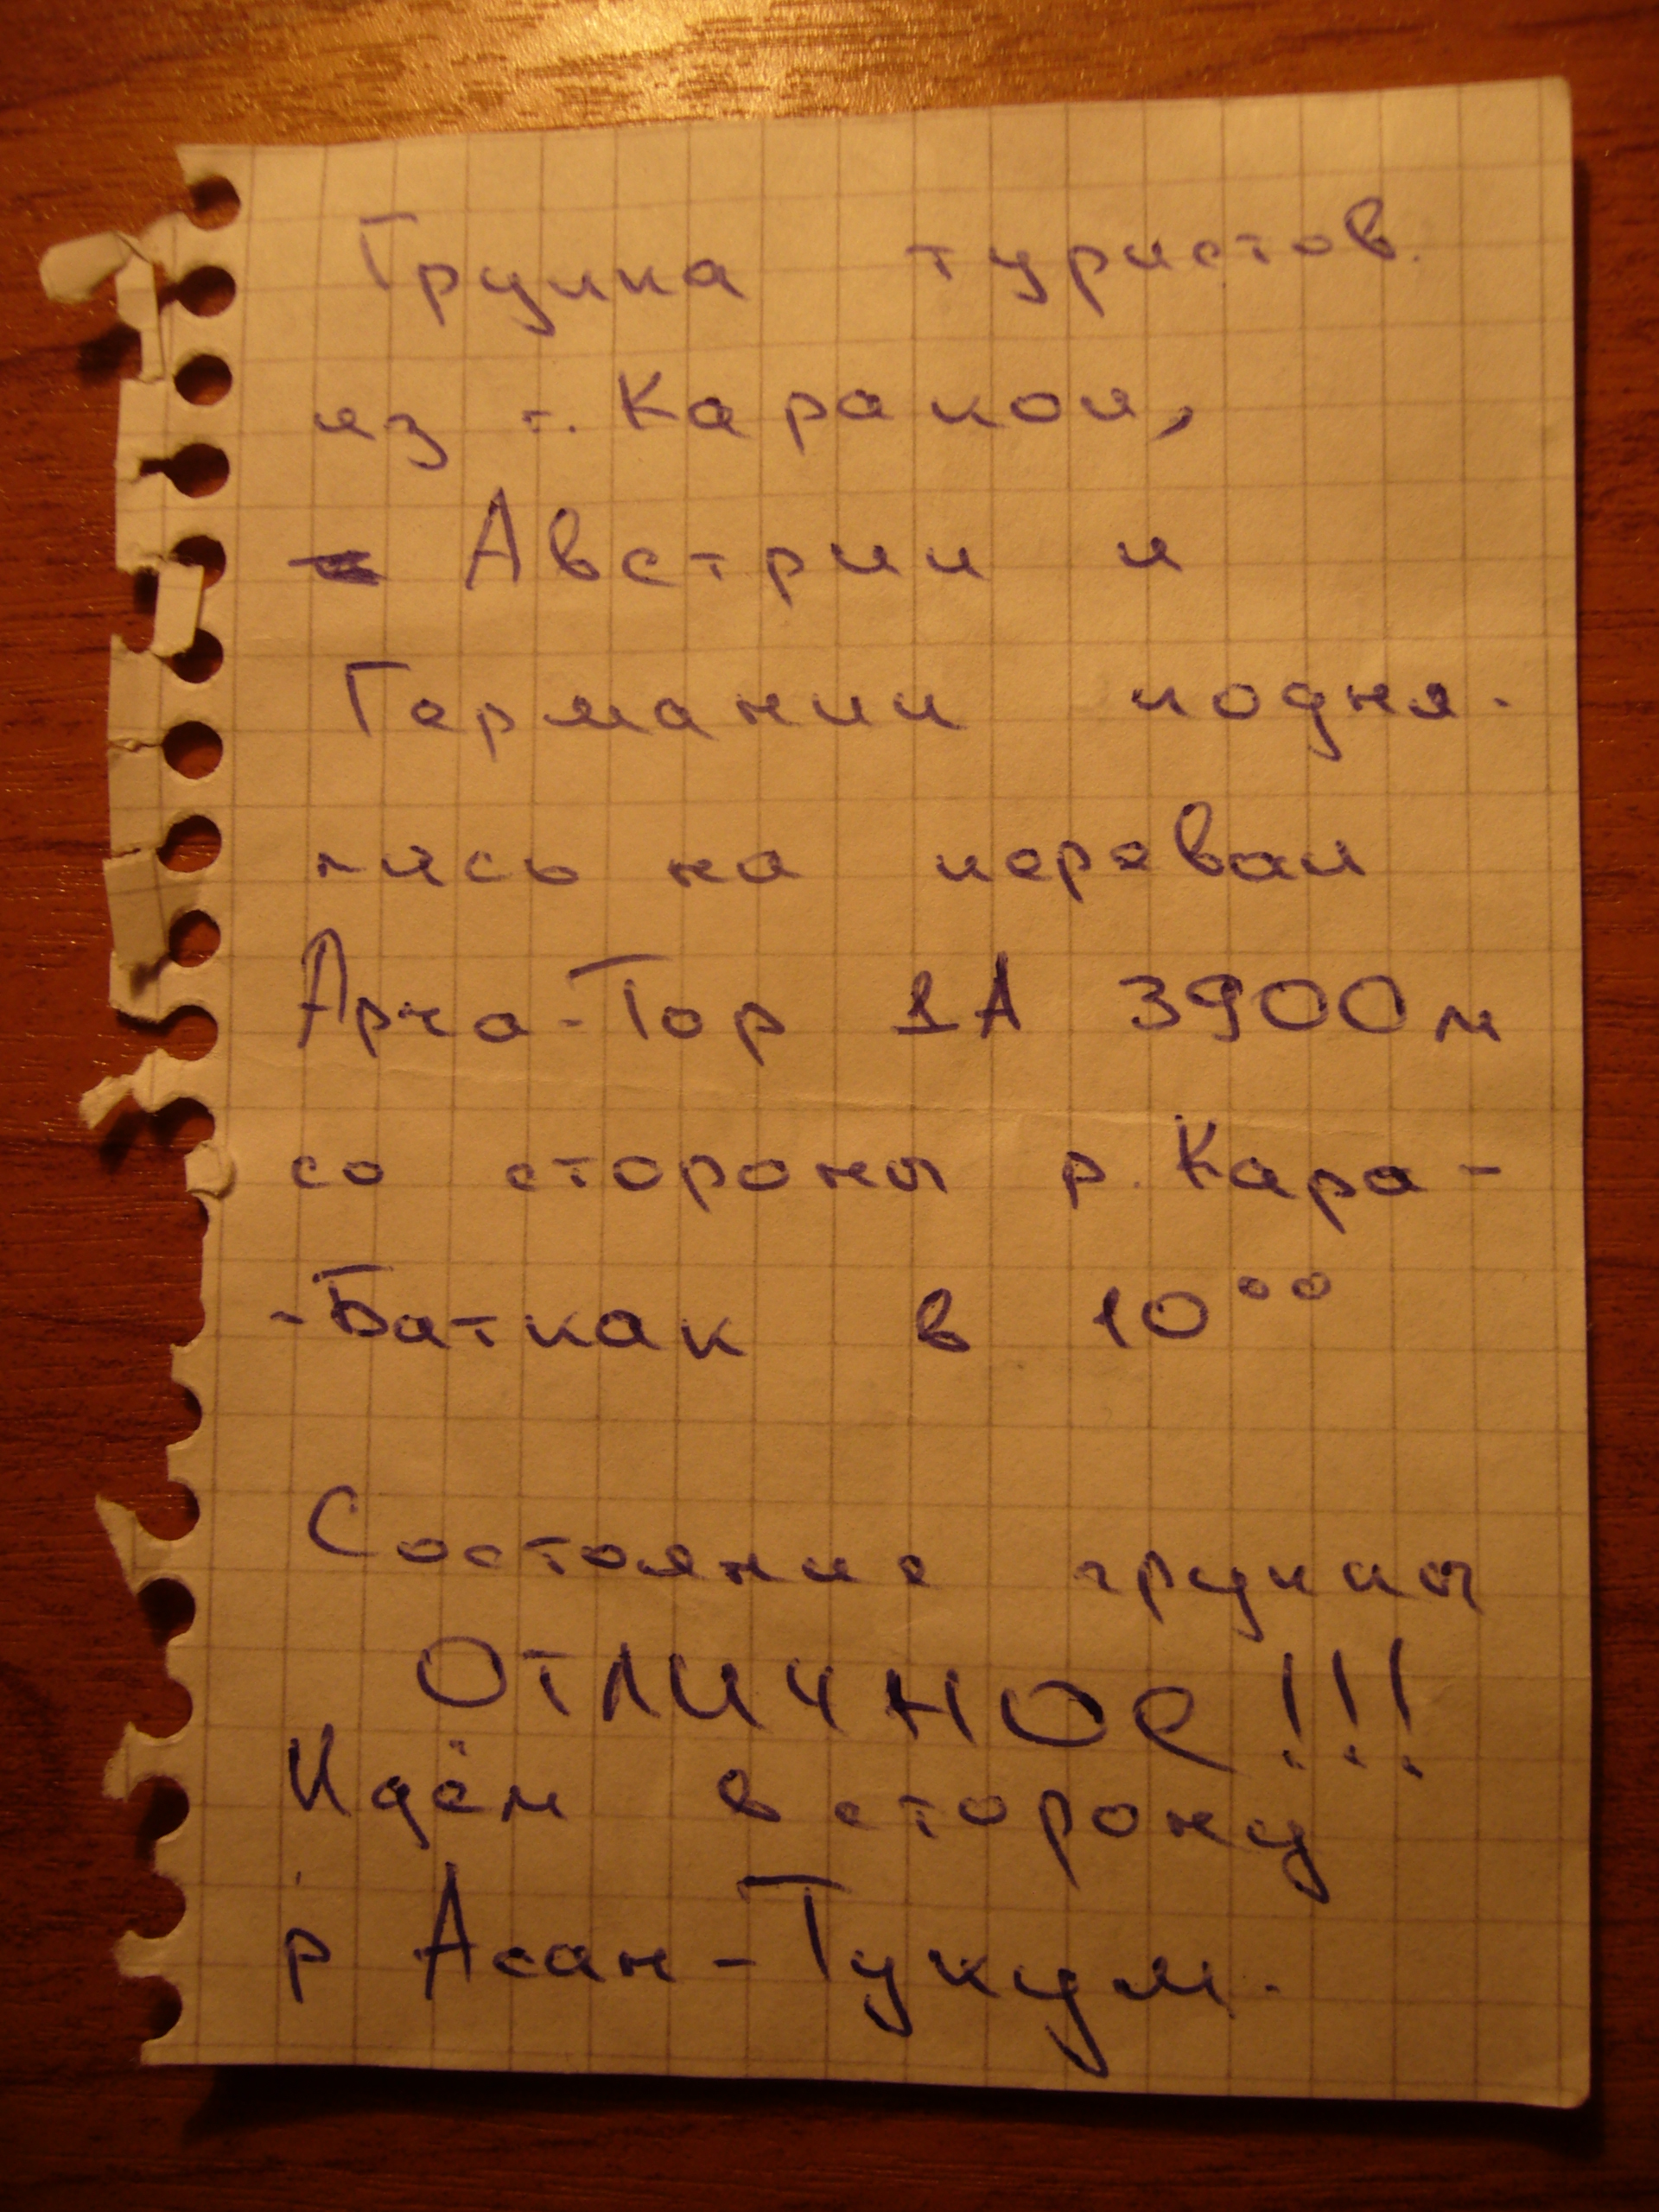 Группа туристов
из г. Каракол,
Австрии и
Германии подня-
лись на перевал
Арча-Тор 1А 3900 м
со стороны р. Кара-
-Баткак в 10⁰⁰
Состояние группы
ОТЛИЧНОЕ!!!
Идём в сторону
р Асан-Тукум.